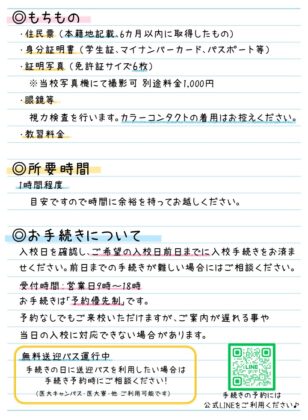 ◎もちもの
・住民票（本籍地記載、6カ月以内に取得したもの）
・身分証明書（学生証、マイナンバーカード、パスポート等）
・証明写真（免許証サイズ6枚）
※当校写真機にて撮影可 別途料金1,000円
・眼鏡等
視力検査を行います。カラーコンタクトの着用はお控えください。
・教習料金
◎所要時間
1時間程度
目安ですので時間に余裕を持ってお越しください。
◎お手続きについて
入校日を確認し、ご希望の入校日前日までに入校手続きをお済ま
せください。前日までの手続きが難しい場合にはご相談ください。
受付時間：営業日9時～18時
お手続きは「予約優先制」です。
予約なしでもご来校いただけますが、ご案内が遅れる事や
当日の入校に対応できない場合があります。
無料送迎バス運行中
手続きの日に送迎バスを利用したい場合は
手続き予約時にご相談ください！
（医大キャンパス・医大寮・他 ご利用可能です）
LINE
手続きの予約には
公式LINEをご利用ください♪